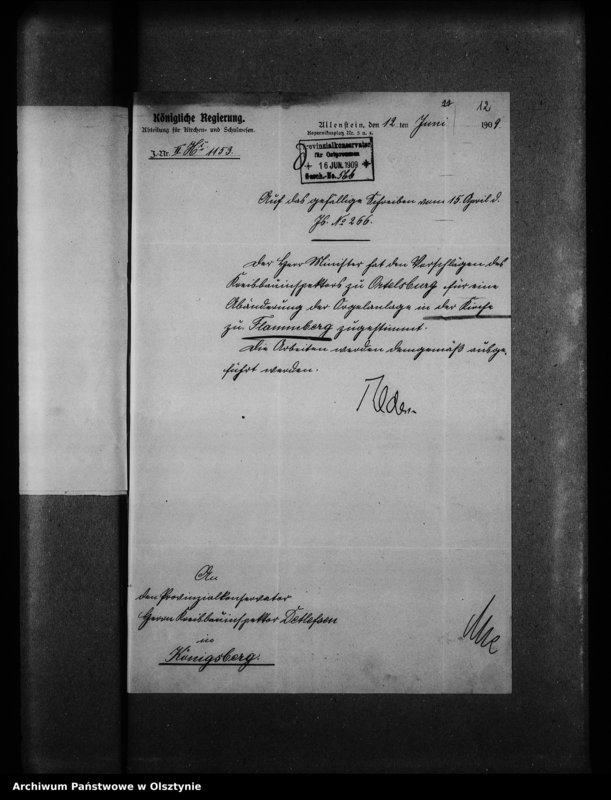 12
Königliche Regierung.
Abteilung für Kirchen- und Schulwesen.
J.-Nr. 1153.
Allenstein, den 12 ten Juni 1909
Kopernikusplatz Nr. 3 u. 4.
Provinzialkonservator
für Ostpreussen
16 JUN. 1909
Gesch.-No. 566
Auf das gefällige Schreiben vom 15. April d.
Js. No 266.
Der Herr Minister hat den Vorschlägen des
Kreisbauinspektors zu Ortelsburg für eine
Abänderung der Orgelanlage in der Kirche
zu Flammberg zugestimmt.
Die Arbeiten werden demgemäß ausge-
führt werden.
An
den Provinzialkonservator
Herrn Kreisbauinspektor Dethlefsen
in
Königsberg.
Archiwum Państwowe w Olsztynie